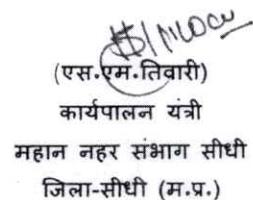 (एस.एम.तिवारी)
कार्यपालन यंत्री
महान नहर संभाग सीधी
जिला-सीधी (म.प्र.)